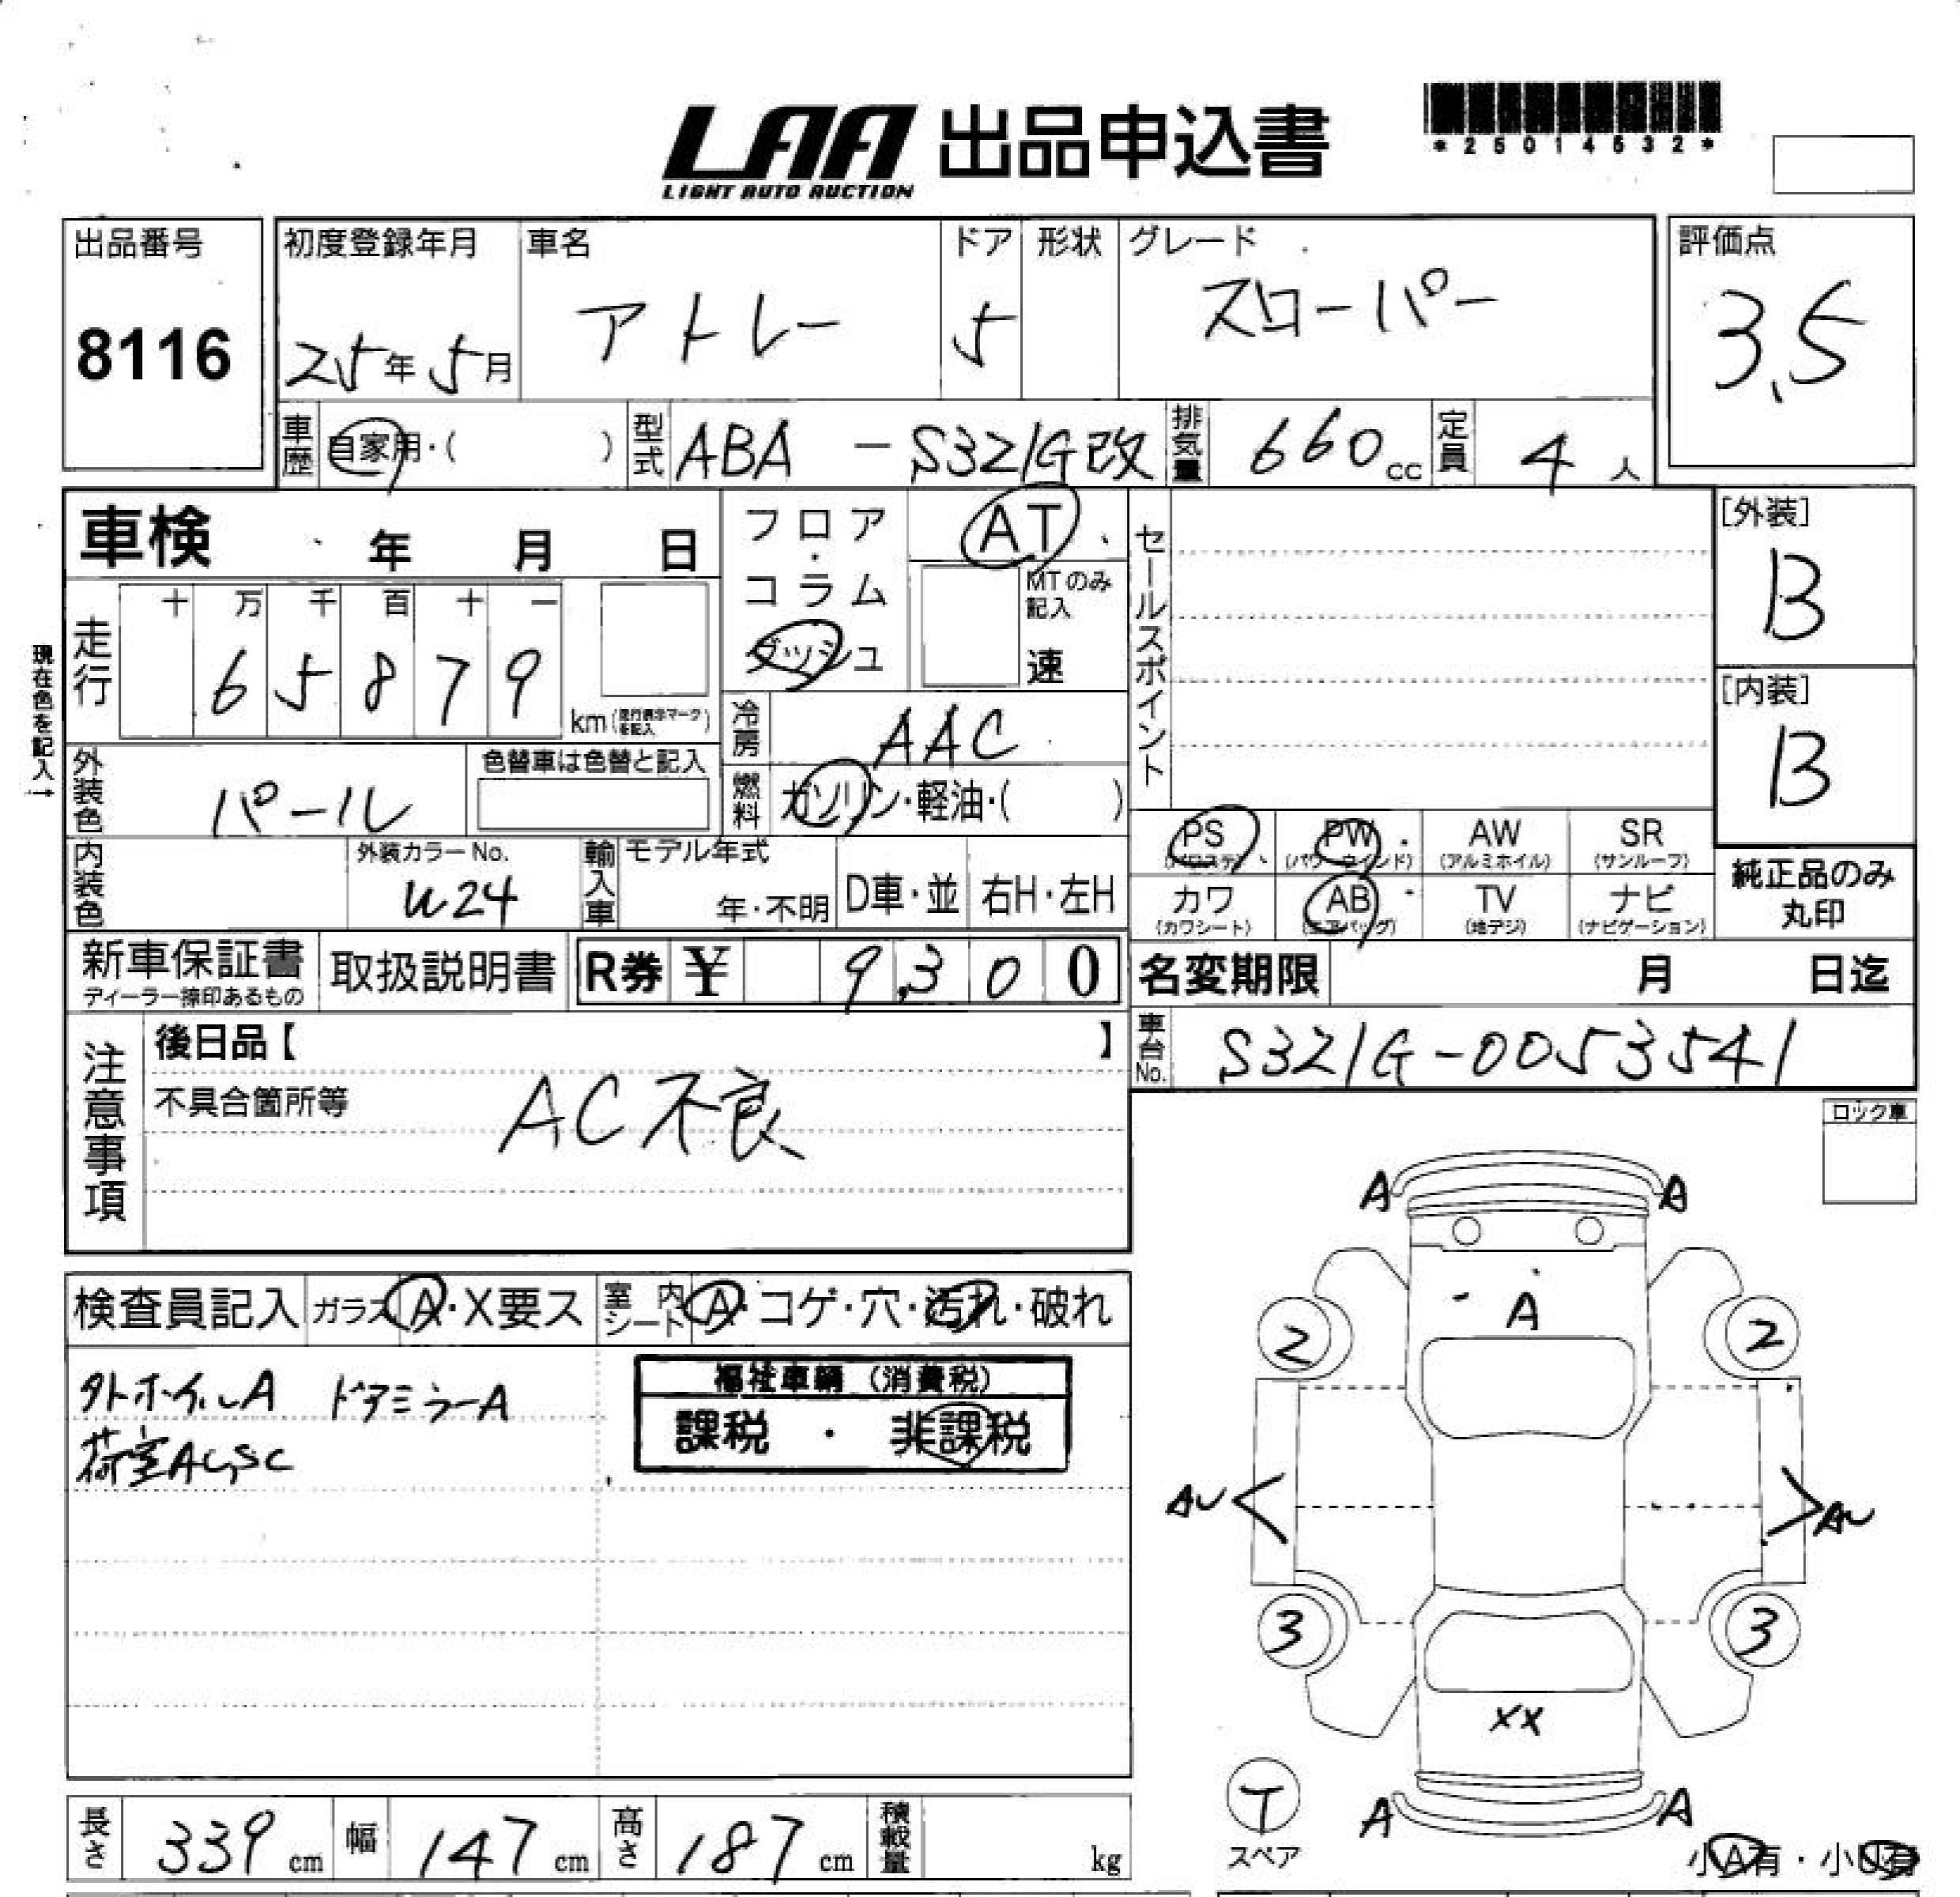 LAA 出品申込書
LIGHT AUTO AUCTION
*25014532*
出品番号
8116
初度登録年月
25年5月
車名
アトレー
ドア
5
形状
グレード
スローパー
評価点
3.5
車歴
自家用・( )
型式
ABA - S321G改
排気量
660cc
定員
4人
車検 年 月 日
フロア・コラム
ダッシュ
AT
MTのみ記入
速
セールスポイント
[外装]
B
[内装]
B
現在色を記入↑
走行
十 万 千 百 十 一
6 5 8 7 9
km (走行表示マークを記入)
冷房
AAC
外装色
パール
色替車は色替と記入
燃料
ガソリン・軽油・( )
PS
(パワステ)
PW
(パワーウインド)
AW
(アルミホイル)
SR
(サンルーフ)
カワ
(カワシート)
AB
(エアバッグ)
TV
(地デジ)
ナビ
(ナビゲーション)
純正品のみ
丸印
内装色
外装カラーNo.
W24
輸入車
モデル年式
年・不明
D車・並
右H・左H
新車保証書
ディーラー捺印あるもの
取扱説明書
R券 ¥ 9,300
名変期限 月 日迄
車台No.
S321G-0053541
注意事項
後日品【 】
不具合箇所等
AC不良
ロック車
検査員記入
ガラス
A・X要ス
室内シート
A・コゲ・穴・汚れ・破れ
外ホイルA ドアミラーA
荷室AC,SC
福祉車輌(消費税)
課税 ・ 非課税
A A
A
2 2
AU AU
3 3
XX
T
スペア
A A
小A有・小U有
長さ
339cm
幅
147cm
高さ
187cm
積載量
kg